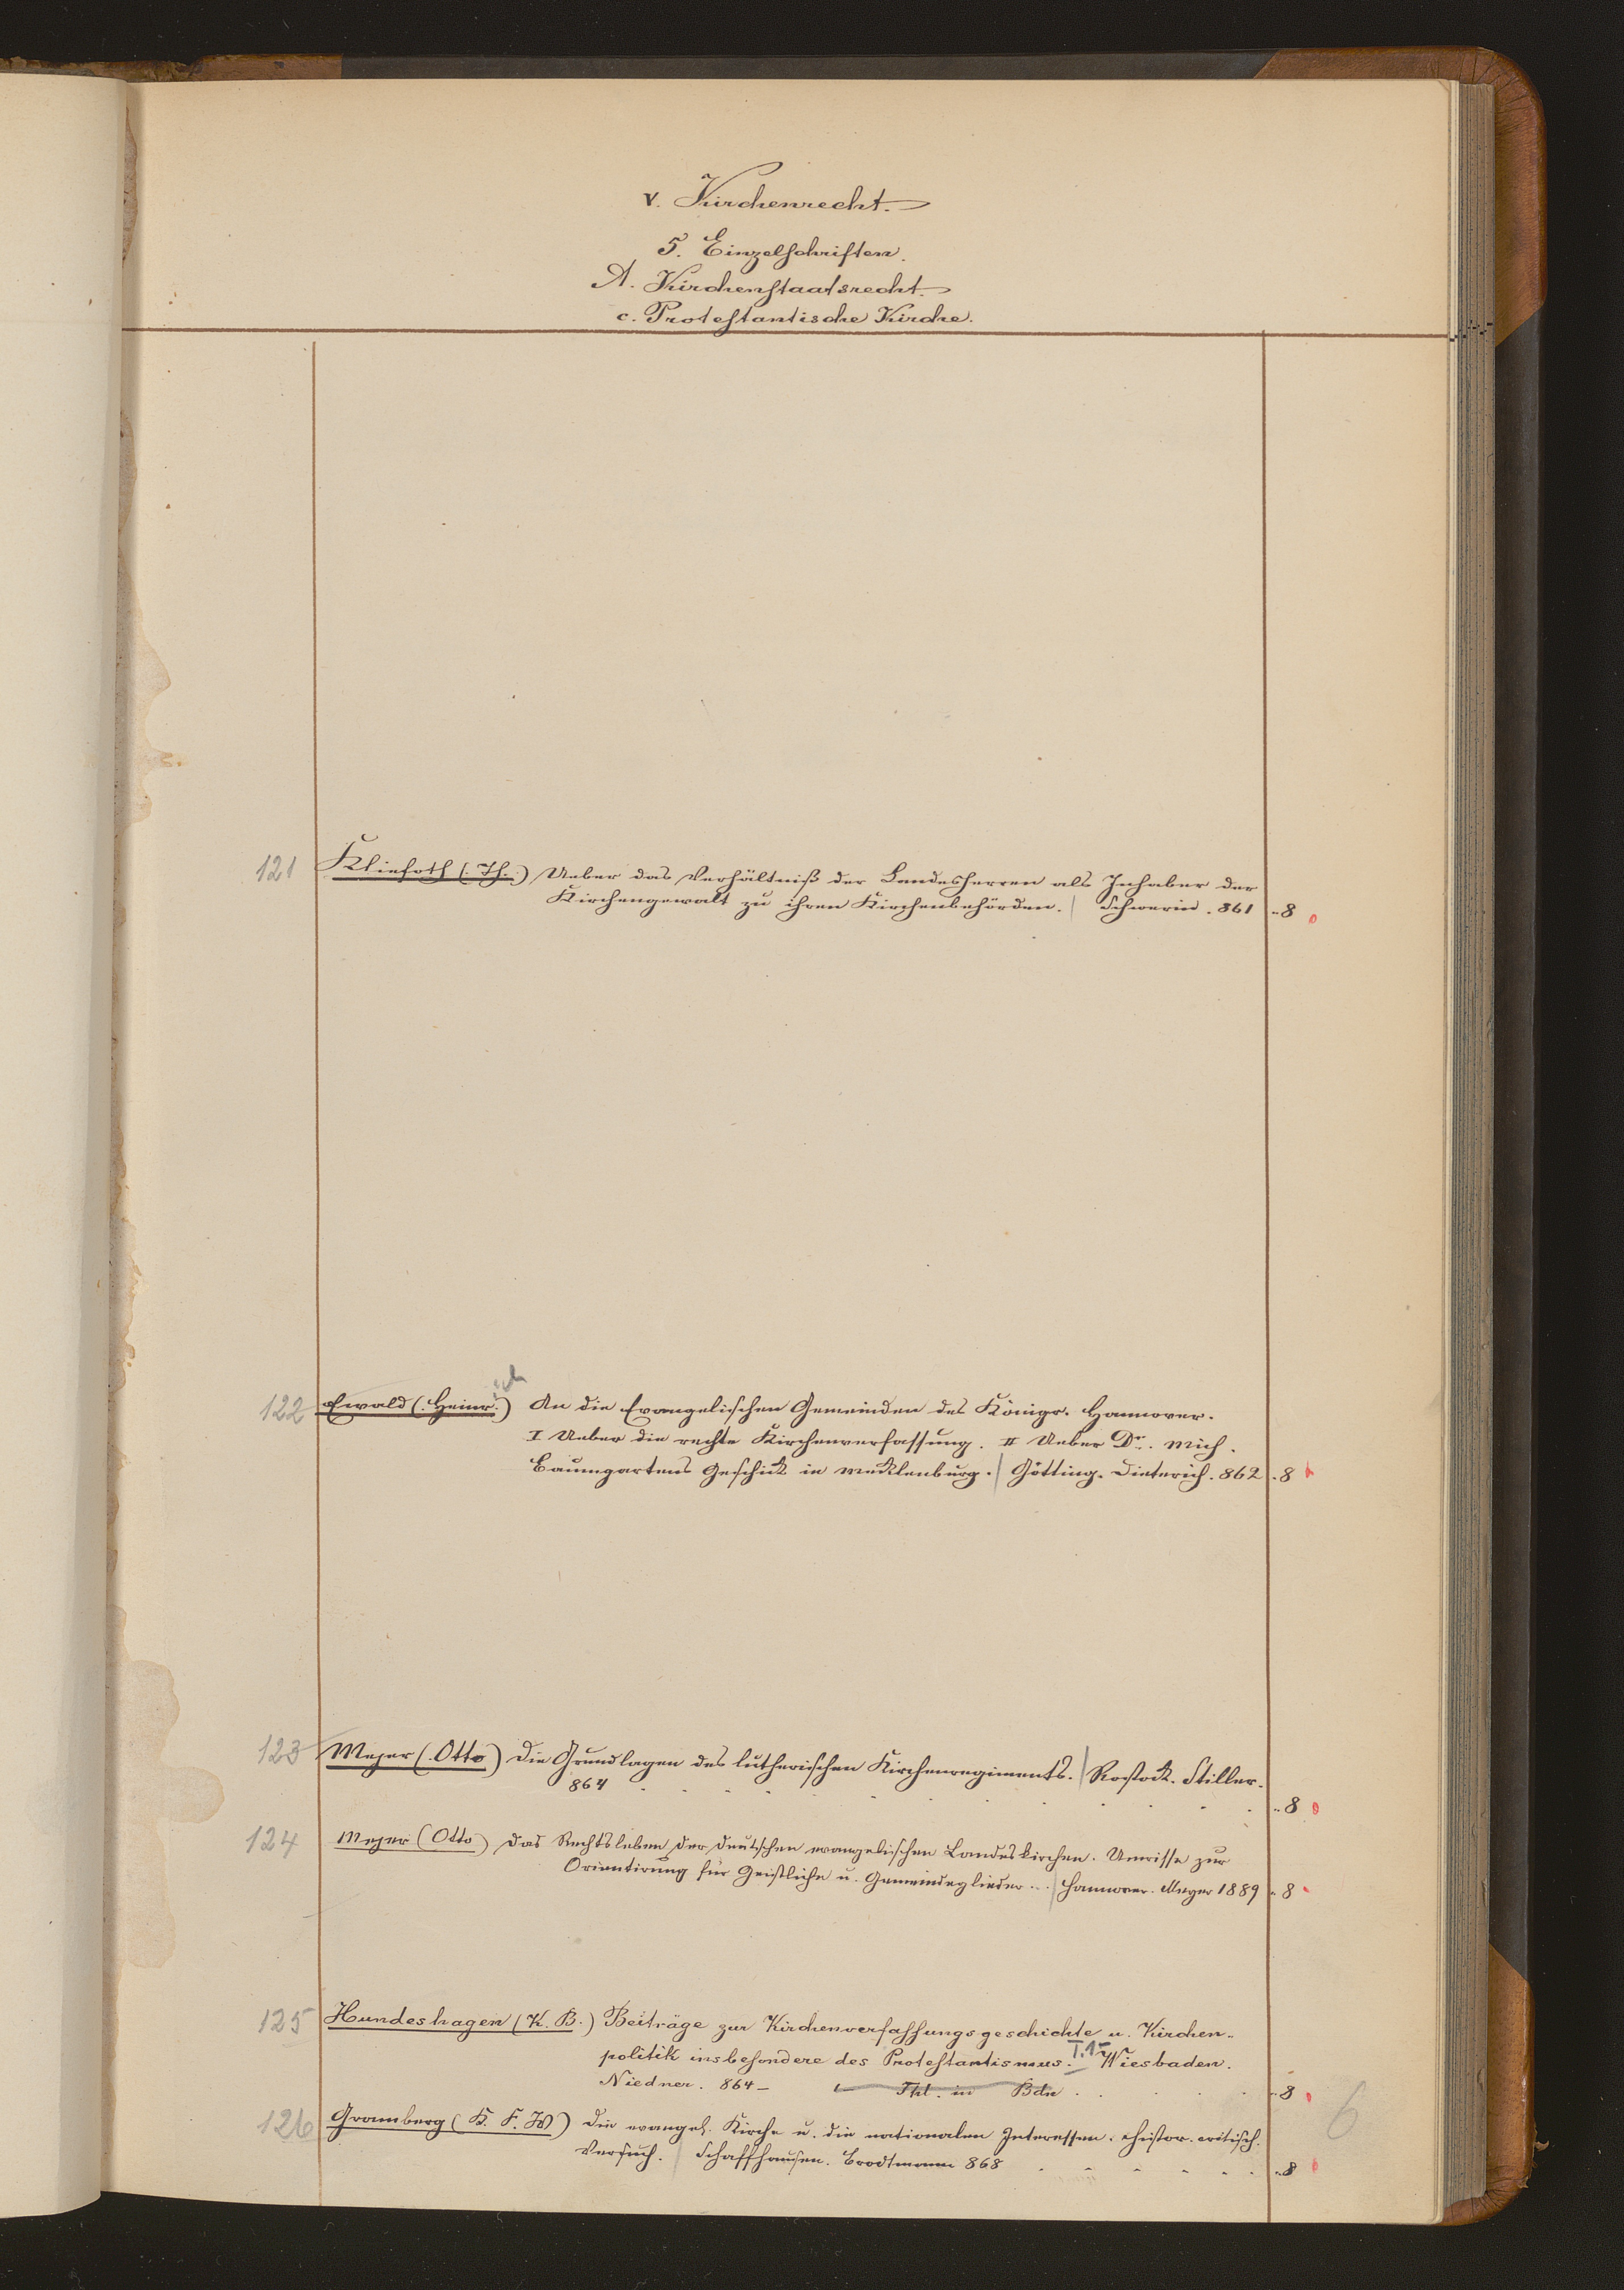 V. Kirchenrecht.
5. Einzelschriften.
A. Kirchenstaatsrecht.
c. Protestantische Kirche.
121 Kliefoth (Th.) Ueber das Verhältniß der Landesherren als Inhaber der
Kirchengewalt zu ihren Kirchenbehörden. Schwerin. 861 .. 8
122 Ewald (Heinr.ich) An die Evangelischen Gemeinden des Königr. Hannover.
I Ueber die rechte Kirchenverfassung. II Ueber Dr. Mich.
Baumgartens Geschick in Mecklenburg. Götting. Dieterich. 862 . 8
123 Mejer (Otto) Die Grundlagen des lutherischen Kirchenregiments. Rostock. Stiller.
864 .. 8
124 Mejer (Otto) Das Rechtsleben der deutschen evangelischen Landeskirchen. Umrisse zur
Orientirung für Geistliche u. Gemeindeglieder ... Hannover. Meyer 1889 .. 8
125 Hundeshagen (K. B.) Beiträge zur Kirchenverfassungsgeschichte u. Kirchen-
politik insbesondere des Protestantismus. I. 1 Wiesbaden.
Niedner. 864 – Thl. in Bde .. 8
6
126 Gramberg (K. F. W) Die evangel. Kirche u. die nationalen Interessen. histor. critisch.
Versuch. Schaffhausen. Brodtmann 868 .. 8